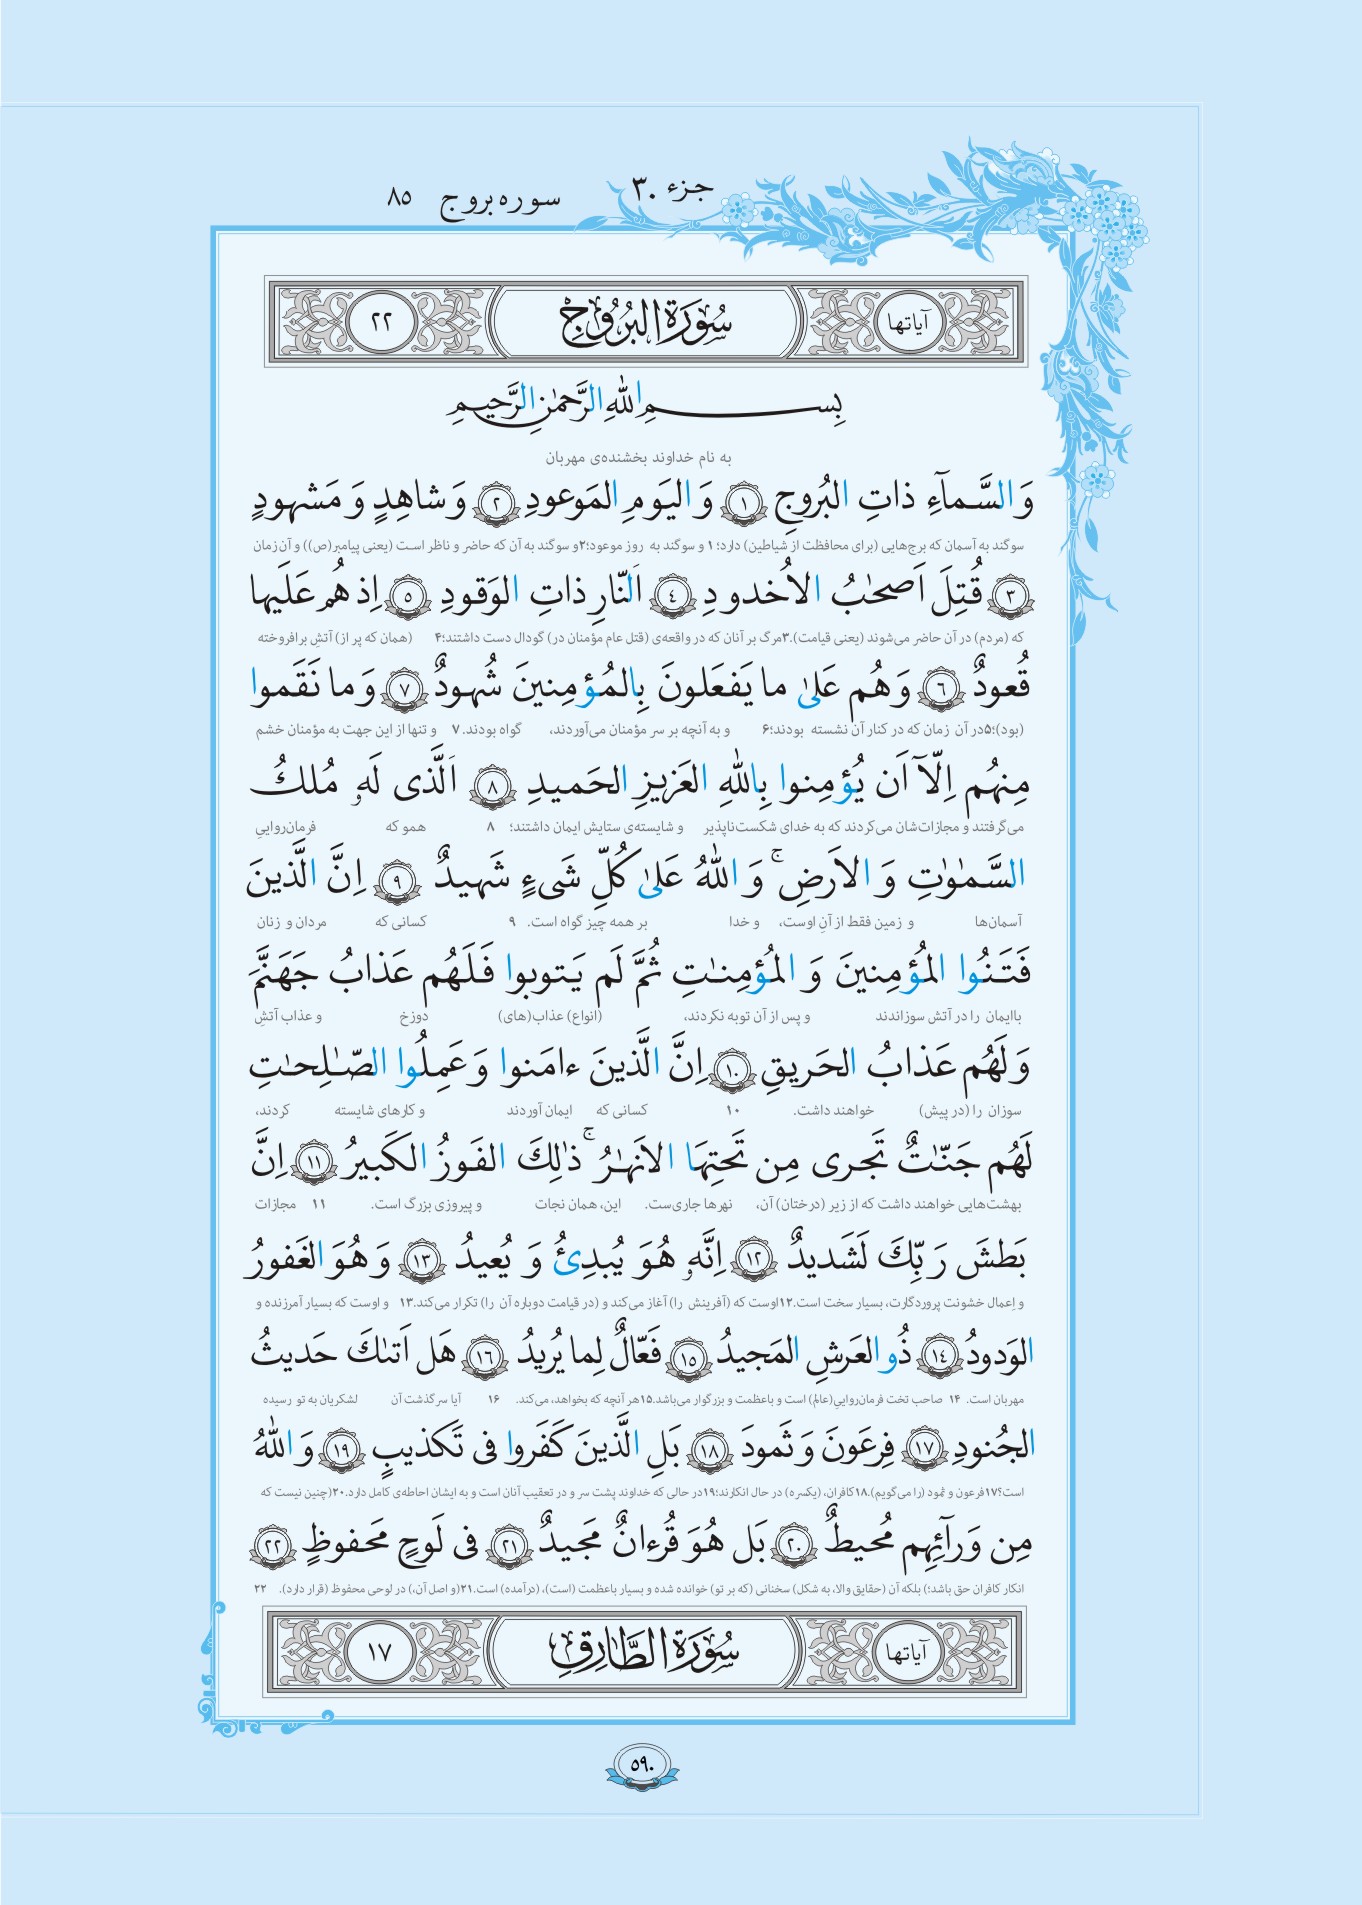 جزء ۳۰
سوره بروج ۸۵
آیاتها سُورَةُ البُرُوجِ ٢٢
بِسـمِ اللّٰهِ الرَّحمٰنِ الرَّحيمِ
به نام خداوند بخشنده‌ی مهربان
وَ السَّمآءِ ذاتِ البُروجِ ﴿١﴾ وَ اليَومِ المَوعودِ ﴿٢﴾ وَ شاهِدٍ وَ مَشهودٍ
سوگند به آسمان که برج‌هایی (برای محافظت از شیاطین) دارد؛ ۱ و سوگند به روز موعود؛۲و سوگند به آن که حاضر و ناظر است (یعنی پیامبر(ص)) و آن زمان
﴿٣﴾ قُتِلَ اَصحٰبُ الاُخدودِ ﴿٤﴾ اَلنّارِ ذاتِ الوَقودِ ﴿٥﴾ اِذ هُم عَلَيها
که (مردم) در آن حاضر می‌شوند (یعنی قیامت).۳مرگ بر آنان که در واقعه‌ی (قتل عام مؤمنان در) گودال دست داشتند؛۴ (همان که پر از) آتشِ برافروخته
قُعودٌ ﴿٦﴾ وَ هُم عَلىٰ ما يَفعَلونَ بِالمُؤمِنينَ شُهودٌ ﴿٧﴾ وَ ما نَقَموا
(بود)؛۵در آن زمان که در کنار آن نشسته بودند؛۶ و به آنچه بر سر مؤمنان می‌آوردند، گواه بودند. ۷ و تنها از این جهت به مؤمنان خشم
مِنهُم اِلّآ اَن يُؤمِنوا بِاللّٰهِ العَزيزِ الحَميدِ ﴿٨﴾ اَلَّذى لَهٗ مُلكُ
می‌گرفتند و مجازات‌شان می‌کردند که به خدای شکست‌ناپذیر و شایسته‌ی ستایش ایمان داشتند؛ ۸ همو که فرمان‌رواییِ
السَّمٰوٰتِ وَ الاَرضِ ۚ وَ اللّٰهُ عَلىٰ كُلِّ شَىءٍ شَهيدٌ ﴿٩﴾ اِنَّ الَّذينَ
آسمان‌ها و زمین فقط از آنِ اوست، و خدا بر همه چیز گواه است. ۹ کسانی که مردان و زنان
فَتَنُوا المُؤمِنينَ وَ المُؤمِنـٰتِ ثُمَّ لَم يَتوبوا فَلَهُم عَذابُ جَهَنَّمَ
باایمان را در آتش سوزاندند و پس از آن توبه نکردند، (انواع) عذاب(های) دوزخ و عذاب آتشِ
وَ لَهُم عَذابُ الحَريقِ ﴿١٠﴾ اِنَّ الَّذينَ ءامَنوا وَ عَمِلُوا الصّـٰلِحـٰتِ
سوزان را (در پیش) خواهند داشت. ۱۰ کسانی که ایمان آوردند و کارهای شایسته کردند،
لَهُم جَنّـٰتٌ تَجرى مِن تَحتِهَا الاَنهـٰرُ ۚ ذٰلِكَ الفَوزُ الكَبيرُ ﴿١١﴾ اِنَّ
بهشت‌هایی خواهند داشت که از زیر (درختان) آن، نهرها جاری‌ست. این، همان نجات و پیروزی بزرگ است. ۱۱ مجازات
بَطشَ رَبِّكَ لَشَديدٌ ﴿١٢﴾ اِنَّهٗ هُوَ يُبدِئُ وَ يُعيدُ ﴿١٣﴾ وَ هُوَ الغَفورُ
و اِعمال خشونت پروردگارت، بسیار سخت است.۱۲اوست که (آفرینش را) آغاز می‌کند و (در قیامت دوباره آن را) تکرار می‌کند.۱۳ و اوست که بسیار آمرزنده و
الوَدودُ ﴿١٤﴾ ذُو العَرشِ المَجيدُ ﴿١٥﴾ فَعّالٌ لِما يُريدُ ﴿١٦﴾ هَل اَتىٰكَ حَديثُ
مهربان است. ۱۴ صاحب تخت فرمان‌روایی(عالم) است و باعظمت و بزرگوار می‌باشد.۱۵هر آنچه که بخواهد، می‌کند. ۱۶ آیا سرگذشت آن لشکریان به تو رسیده
الجُنودِ ﴿١٧﴾ فِرعَونَ وَ ثَمودَ ﴿١٨﴾ بَلِ الَّذينَ كَفَروا فى تَكذيبٍ ﴿١٩﴾ وَ اللّٰهُ
است؟۱۷فرعون و ثمود (را می‌گویم).۱۸کافران، (یکسره) در حال انکارند؛۱۹در حالی که خداوند پشت سر و در تعقیب آنان است و به ایشان احاطه‌ی کامل دارد.۲۰(چنین نیست که
مِن وَرآئِهِم مُحيطٌ ﴿٢٠﴾ بَل هُوَ قُرءانٌ مَجيدٌ ﴿٢١﴾ فى لَوحٍ مَحفوظٍ ﴿٢٢﴾
انکار کافران حق باشد؛) بلکه آن (حقایق والا، به شکل) سخنانی (که بر تو) خوانده شده و بسیار باعظمت (است)، (درآمده) است.۲۱(و اصل آن،) در لوحی محفوظ (قرار دارد). ۲۲
آیاتها سُورَةُ الطَّارِقِ ١٧
۵۹۰